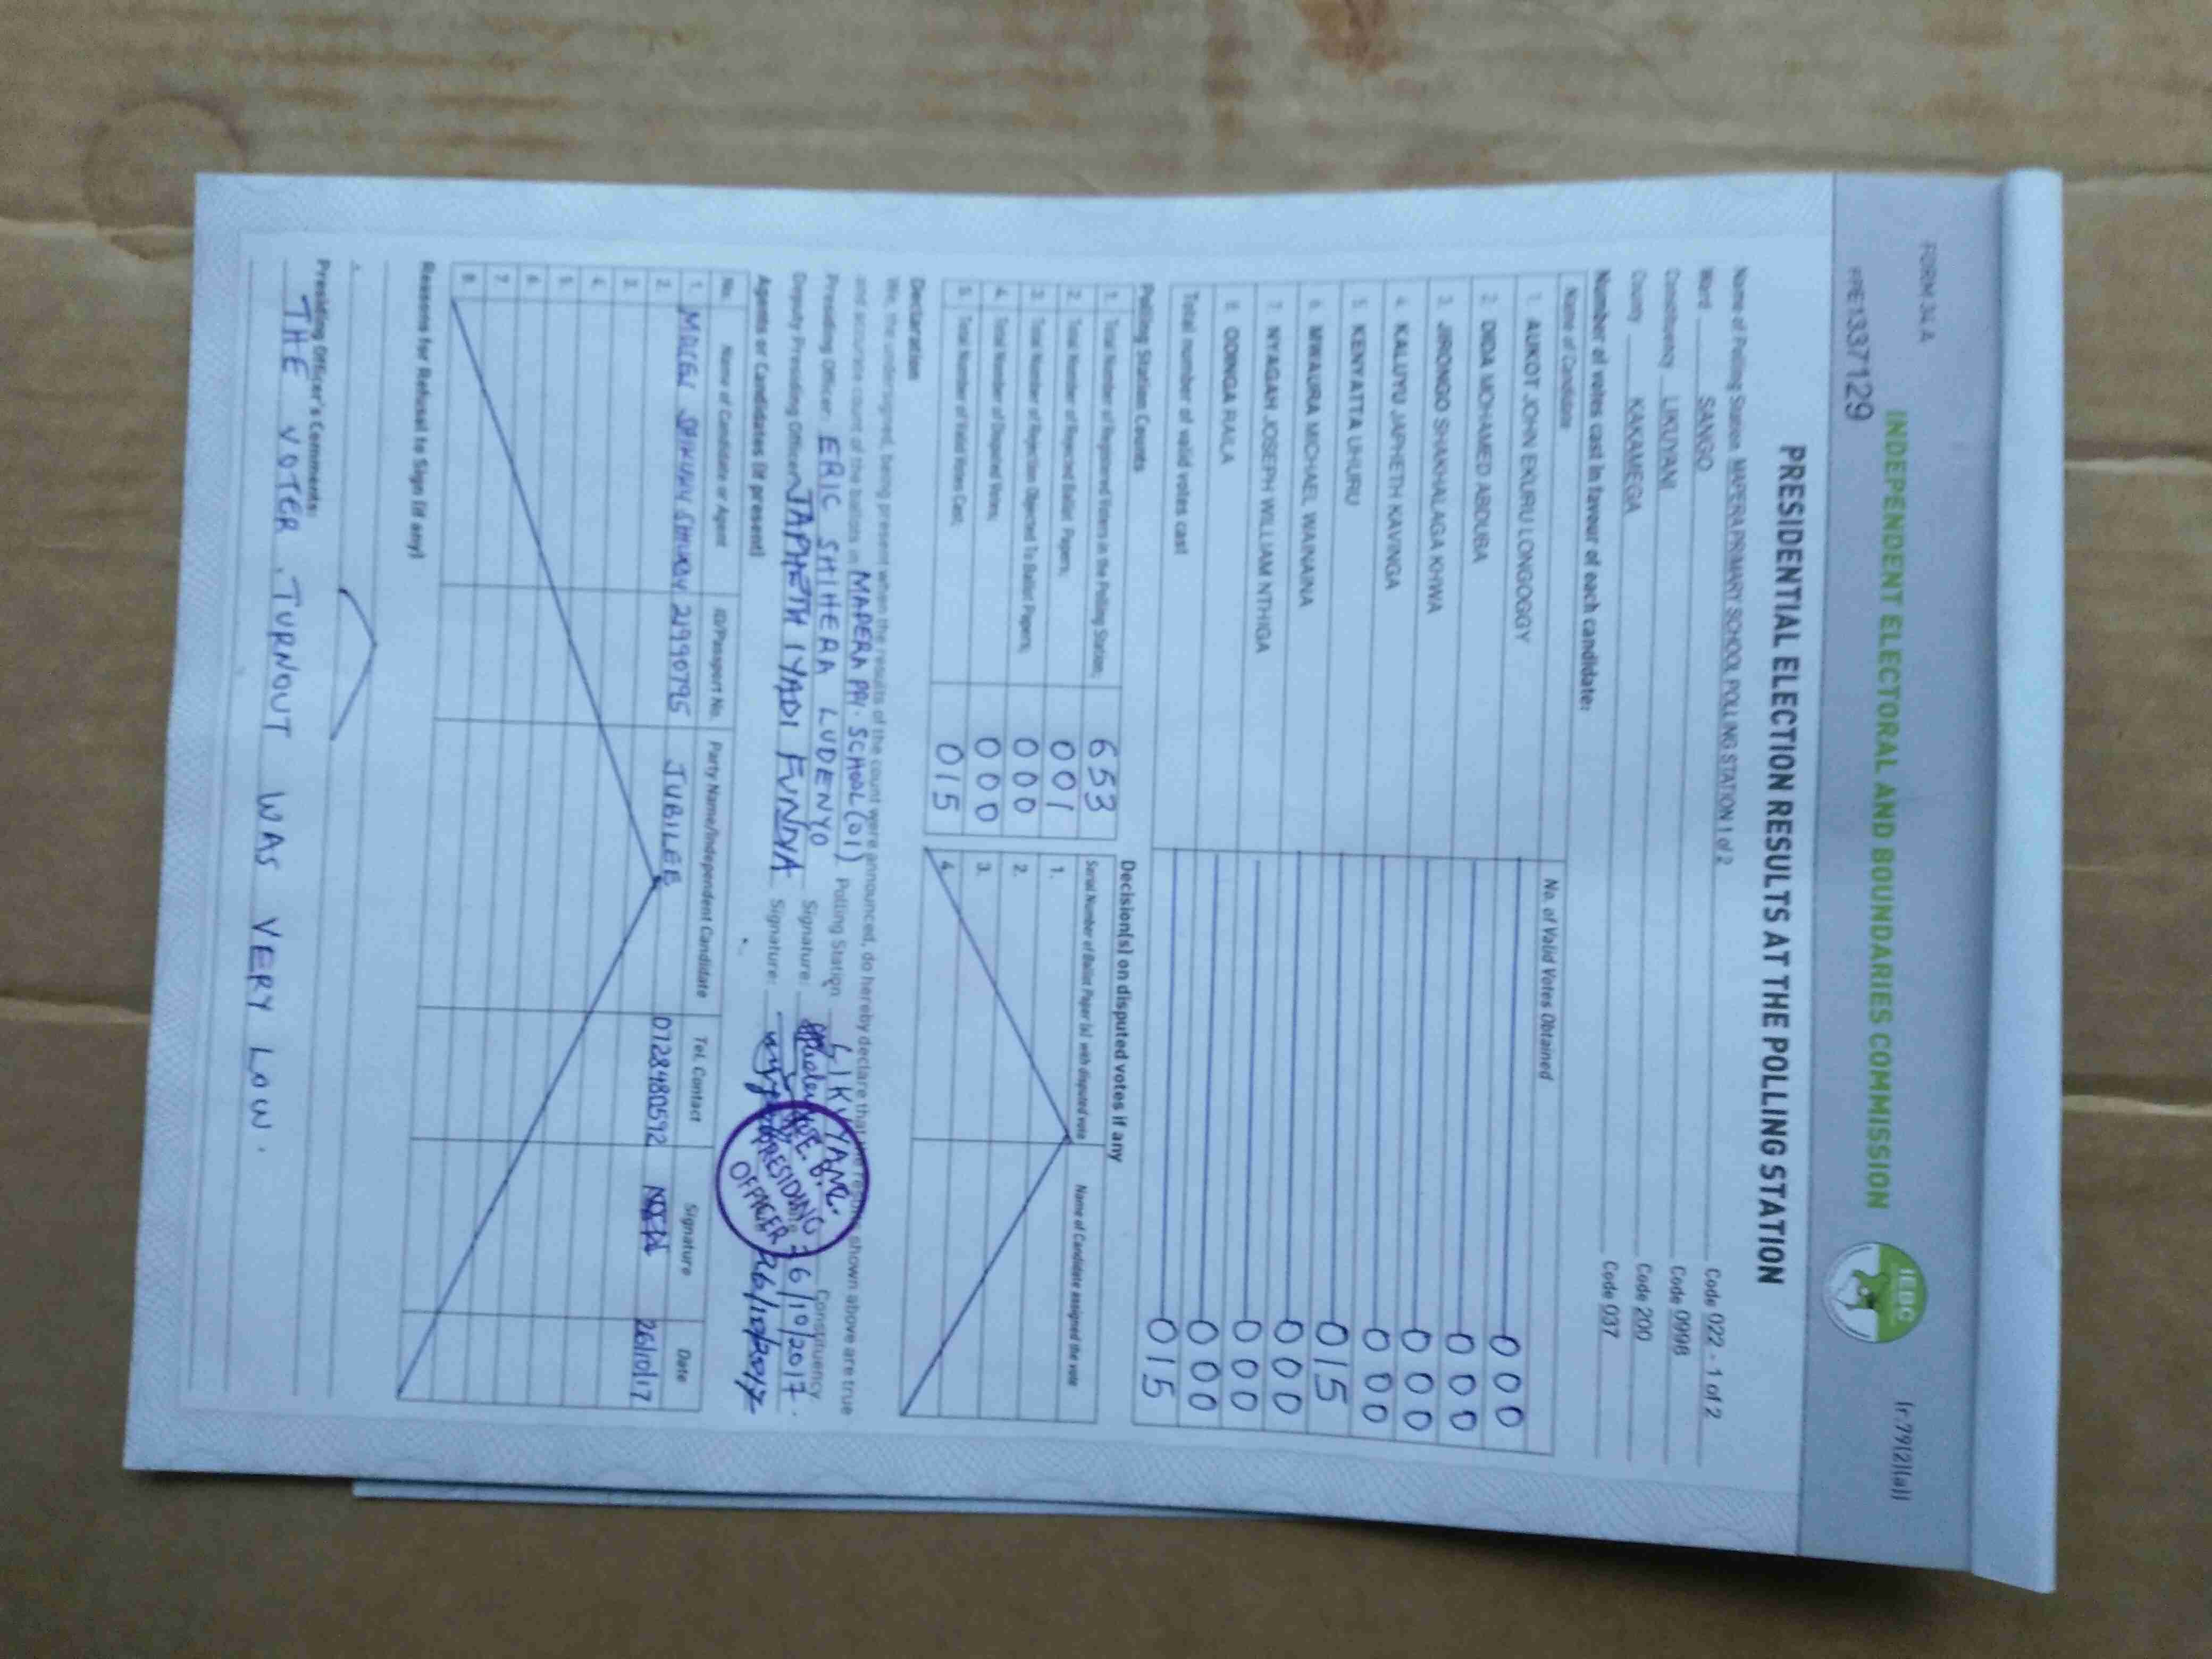 FORM 34 A
[r.79(2)(a)]
INDEPENDENT ELECTORAL AND BOUNDARIES COMMISSION
IEBC
PRE1337129
PRESIDENTIAL ELECTION RESULTS AT THE POLLING STATION
Name of Polling Station MAPERA PRIMARY SCHOOL POLLING STATION 1 of 2 Code 022 - 1 of 2
Ward SANGO Code 0998
Constituency LIKUYANI Code 200
County KAKAMEGA Code 037
Number of votes cast in favour of each candidate:
Name of Candidate No. of Valid Votes Obtained
1. AUKOT JOHN EKURU LONGOGGY 000
2. DIDA MOHAMED ABDUBA 000
3. JIRONGO SHAKHALAGA KHWA 000
4. KALUYU JAPHETH KAVINGA 000
5. KENYATTA UHURU 015
6. MWAURA MICHAEL WAINAINA 000
7. NYAGAH JOSEPH WILLIAM NTHIGA 000
8. ODINGA RAILA 000
Total number of valid votes cast 015
Polling Station Counts
1. Total Number of Registered Voters in the Polling Station; 653
2. Total Number of Rejected Ballot Papers; 001
3. Total Number of Rejection Objected To Ballot Papers; 000
4. Total Number of Disputed Votes; 000
5. Total Number of Valid Votes Cast; 015
Decision(s) on disputed votes if any
Serial Number of Ballot Paper (s) with disputed vote Name of Candidate assigned the vote
1.
2.
3.
4.
Declaration
We, the undersigned, being present when the results of the count were announced, do hereby declare that the results shown above are true
and accurate count of the ballots in MAPERA PRI. SCHOOL (01) Polling Station LIKUYANI Constituency
Presiding Officer: ERIC SHIHERA LUDENYO Signature: 26/10/2017.
Deputy Presiding Officer: JAPHETH IYADI FUNDIA Signature: 26/10/2017
PRESIDING
OFFICER
Agents or Candidates (if present)
No. Name of Candidate or Agent ID/Passport No. Party Name/Independent Candidate Tel. Contact Signature Date
1. 21990795 JUBILEE 0728480592 26/10/17
2.
3.
4.
5.
6.
7.
8.
Reasons for Refusal to Sign (if any)
Presiding Officer's Comments:
THE VOTER TURNOUT WAS VERY LOW.